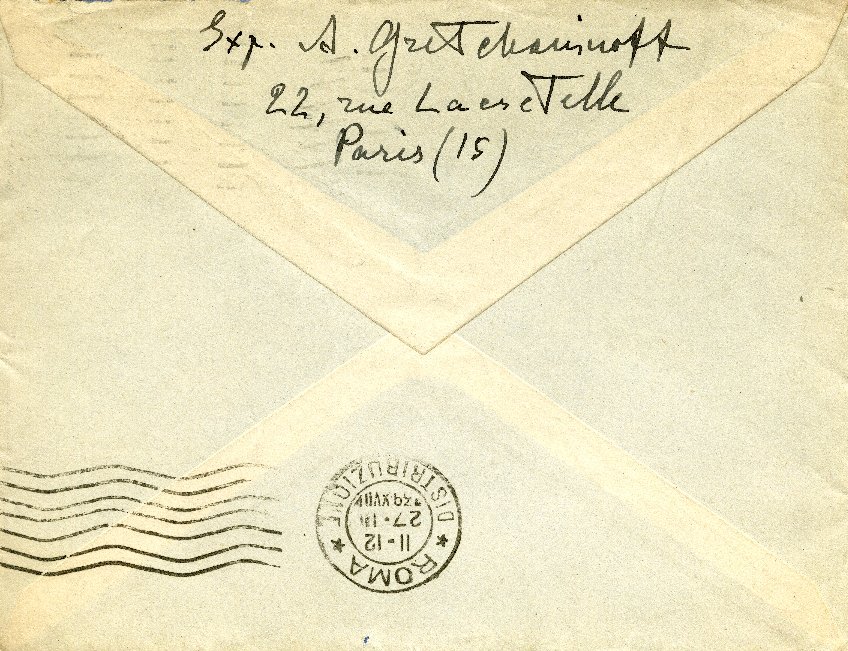 Exp. A. Gretchaninoff
22, rue Lacretelle
Paris (15)
ROMA
11-12
27·
39 XVII
DISTRIBUZIONE